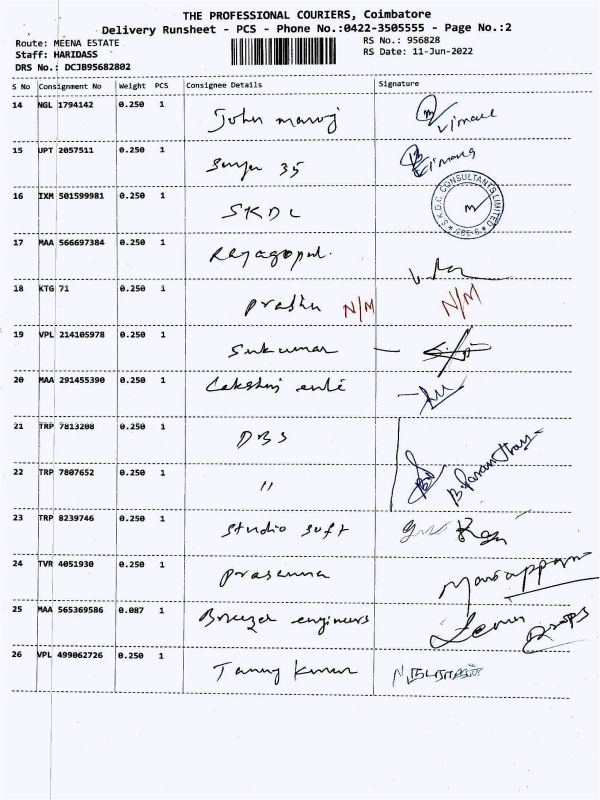 THE PROFESSIONAL COURIERS, Coimbatore
Delivery Runsheet - PCS - Phone No.:0422-3505555 - Page No.:2
Route: MEENA ESTATE
Staff: HARIDASS
DRS No.: DCJB95682802
RS No.: 956828
RS Date: 11-Jun-2022
S No Consignment No Weight PCS Consignee Details Signature
14 NGL 1794142 0.250 1 John manoj Vimal
15 UPT 2057511 0.250 1 Surya 35
16 IXM 501599981 0.250 1 SKDC S.K.D.C CONSULTANTS LIMITED
17 MAA 566697384 0.250 1 Rejagopal.
18 KTG 71 0.250 1 prashu N/M N/M
19 VPL 214105978 0.250 1 Sukumar
20 MAA 291455390 0.250 1 Lakshmi
21 TRP 7813208 0.250 1 DBS
22 TRP 7807652 0.250 1 "
23 TRP 8239746 0.250 1 Studio soft
24 TVR 4051930 0.250 1 prasanna Mariappan
25 MAA 565369586 0.087 1 Breeze engineers
26 VPL 499062726 0.250 1 Kumar